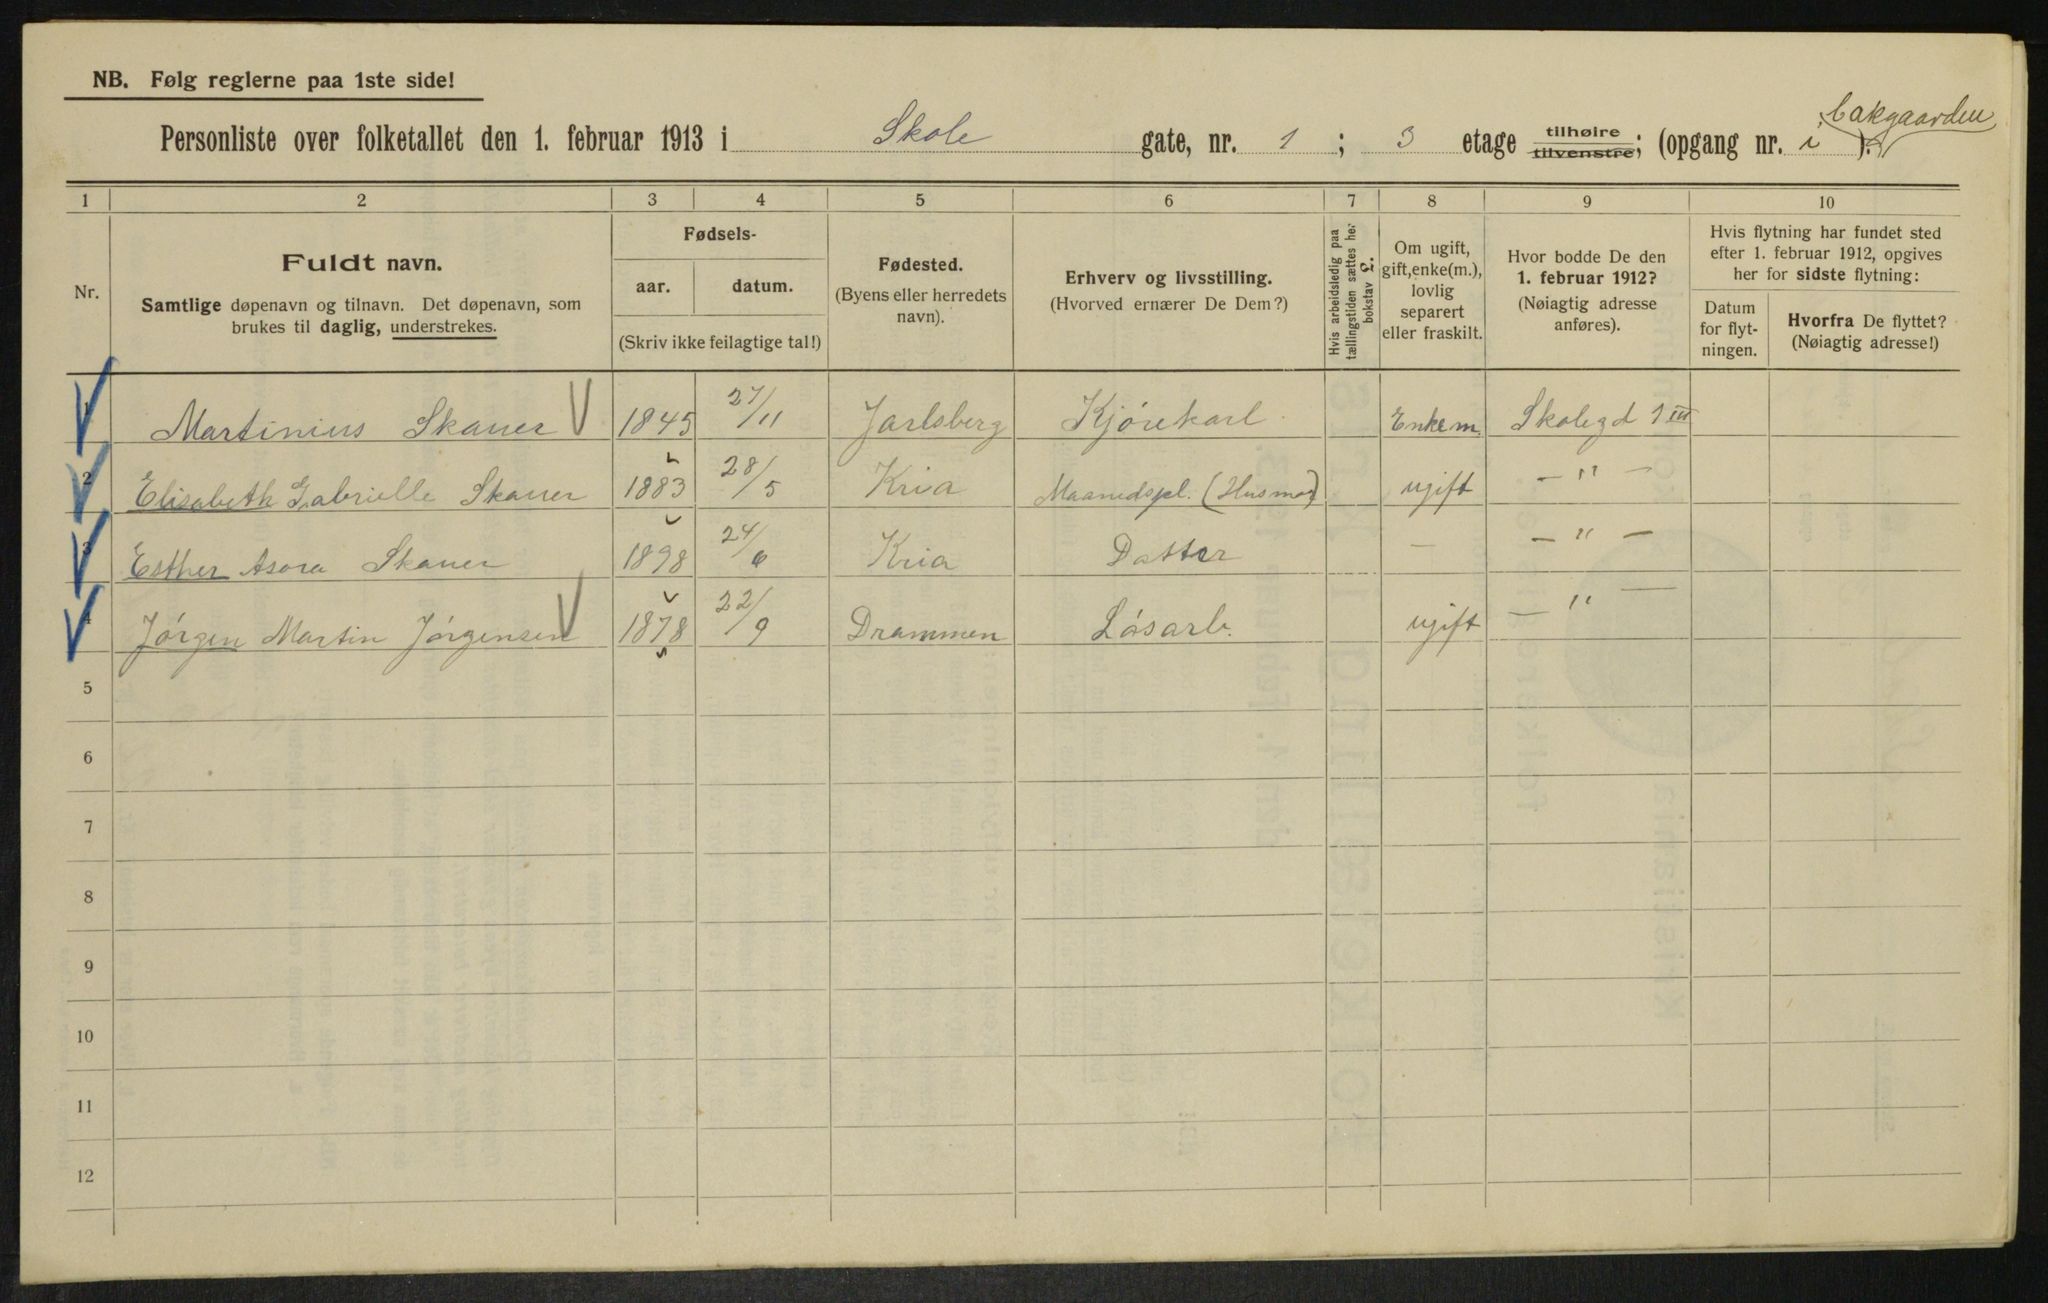 NB. Følg reglerne paa 1ste side!
Personliste over folketallet den 1. februar 1913 i Skole gate, nr. 1 ; 3 etage tilhøire tilvenstre; (opgang nr. i ).
bakgaarden
1 2 3 4 5 6 7 8 9 10
Nr.
Fuldt navn.
Samtlige døpenavn og tilnavn. Det døpenavn, som
brukes til daglig, understrekes.
Fødsels-
aar. datum.
(Skriv ikke feilagtige tal!)
Fødested.
(Byens eller herredets
navn).
Erhverv og livsstilling.
(Hvorved ernærer De Dem?)
Hvis arbeidsledig paa
tællingstiden sættes her
bokstav £.
Om ugift,
gift, enke(m.),
lovlig
separert
eller fraskilt.
Hvor bodde De den
1. februar 1912?
(Nøiagtig adresse
anføres).
Hvis flytning har fundet sted
efter 1. februar 1912, opgives
her for sidste flytning:
Datum
for flyt-
ningen.
Hvorfra De flyttet?
(Nøiagtig adresse!)
1 Martinius Skauer 1845 27/11 Jarlsberg Kjørekarl Enkem. Skolegd 1 III
2 Elisabeth Gabrielle Skauer 1883 28/5 Kria Maanedspl. (Husmor) ugift — " —
3 Esther Asora Skauer 1898 24/6 Kria Datter — — " —
4 Jórgen Martin Jórgensen 1878 22/9 Drammen Lósarb. ugift — " —
5
6
7
8
9
10
11
12